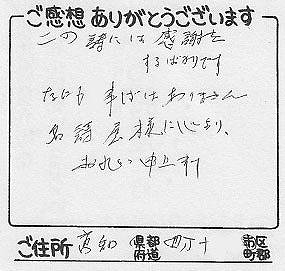 ご感想 ありがとうございます
この 誌には 感謝を
するばかりです
なにも 事ばはありません
名 屋 様に心より、
お礼い 申上す
ご住所 高知 県都府道 四万十 市区町郡